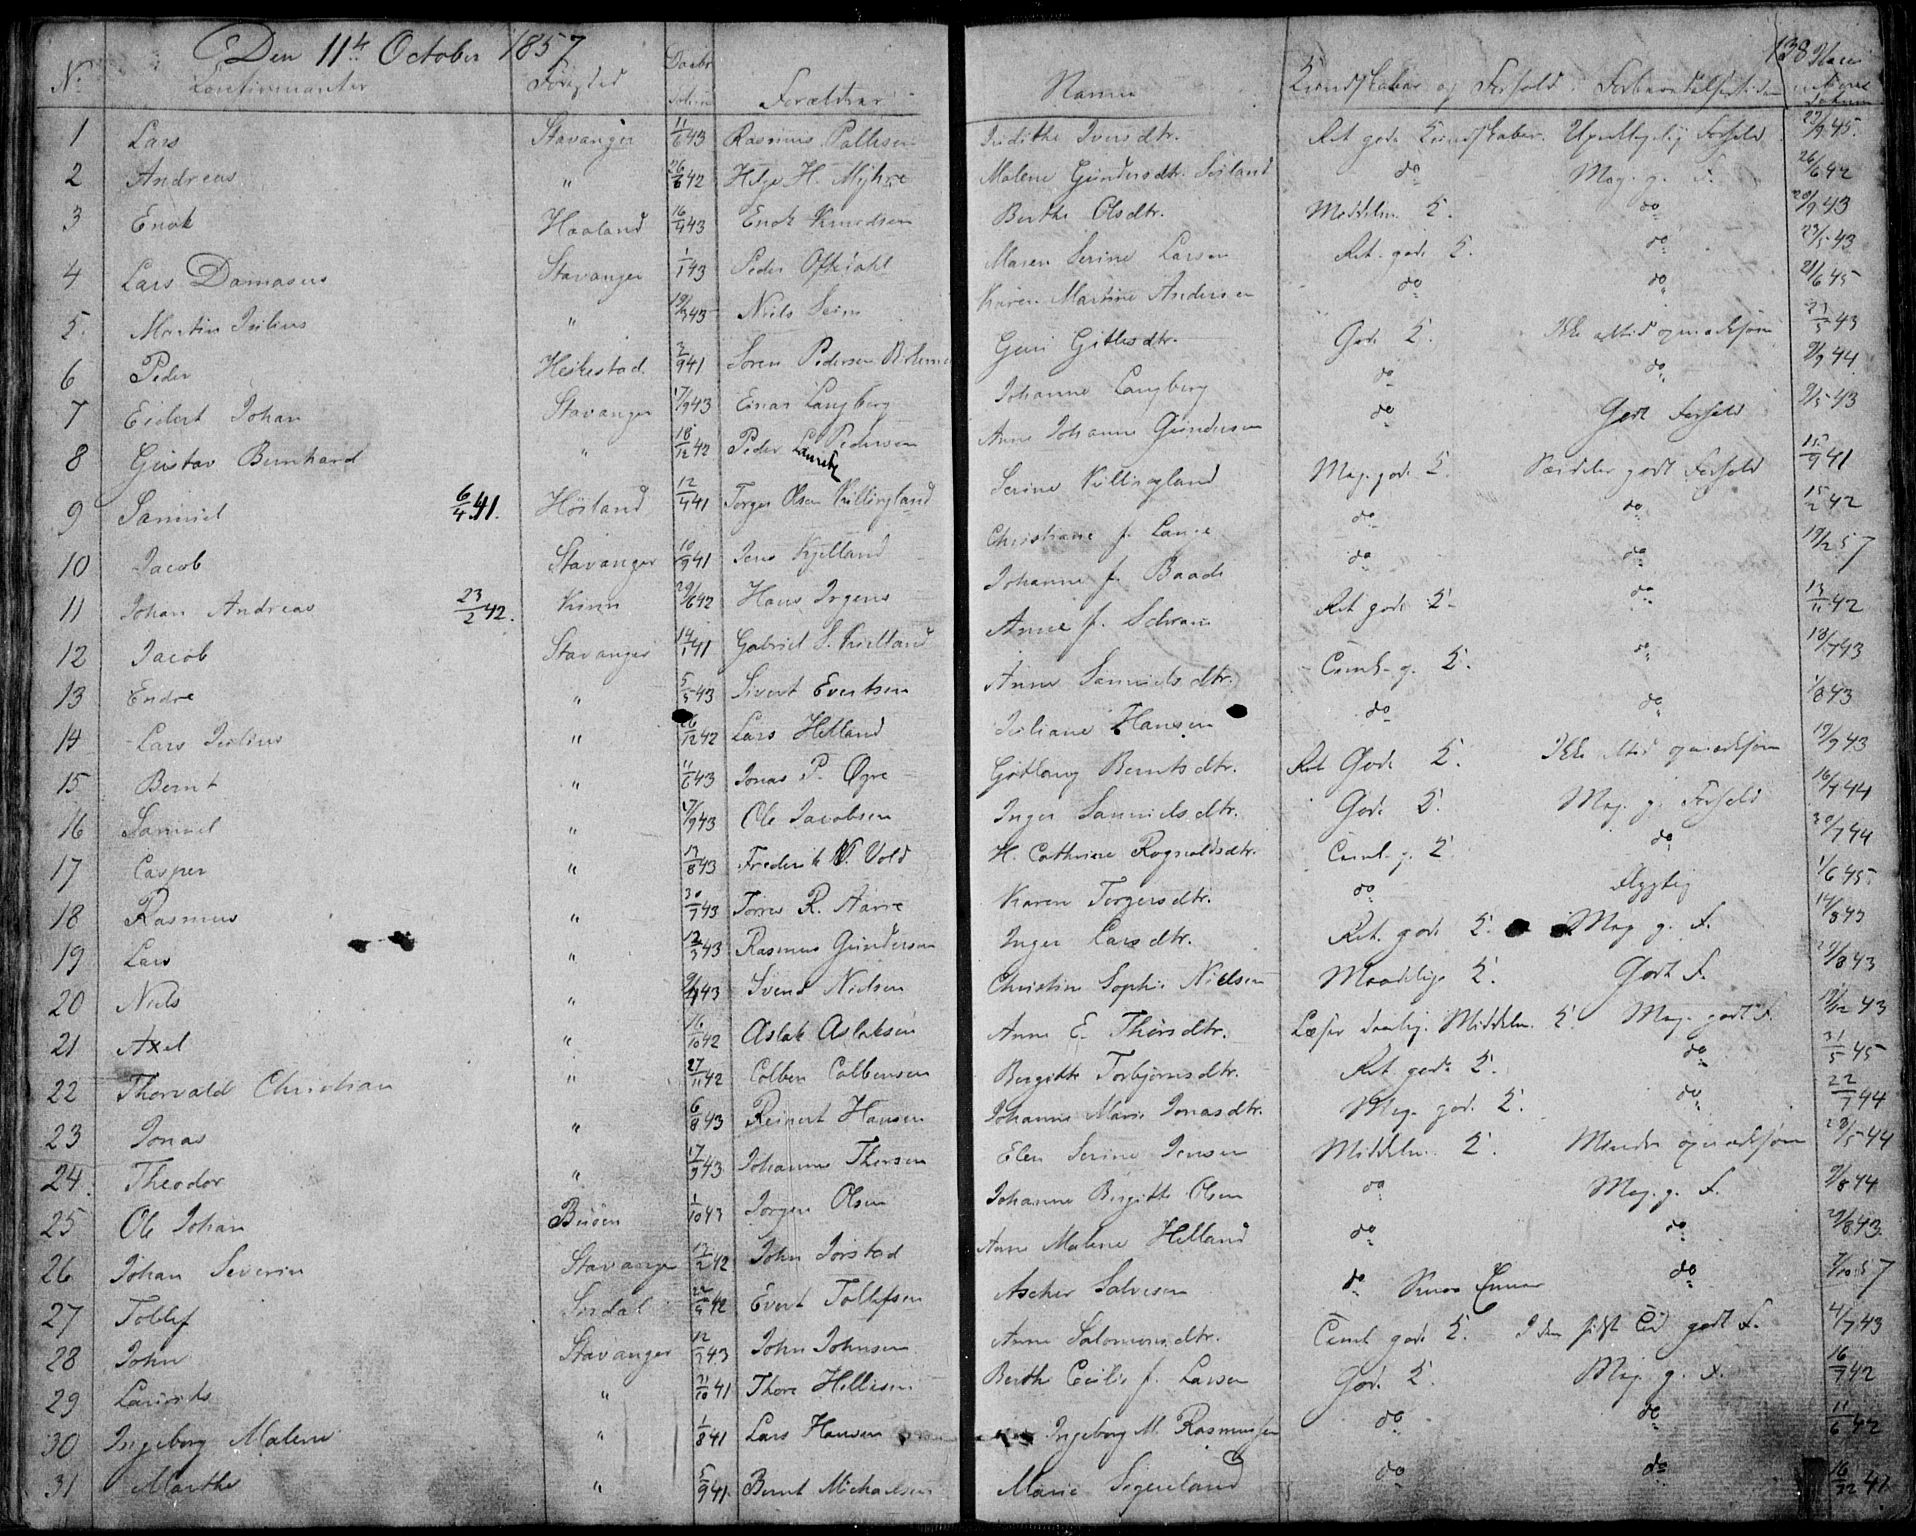 Den 11te October 1857 138
No Confirmanter Fødested Daabs Datum Forældrar Namne Kundskaber og Forhold Vaccinations Datum
1 Lars Stavanger 11/6 43 Rasmus Pallesen Judithe Iversdtr. Ret gode Kundskaber. Forhold 23/9 45.
2 Andreas " 26/6 42 Helge H. Myhre Malene Gundersdtr. do Meg. g. F. 26/6 42
3 Enok Haaland 16/4 43 Enok Knudsen Berthe Olsdtr. Middelm. K. do 20/9 43
4 Lars Damasus Stavanger 1/1 43 Peder Oftedahl Maren Serine Larsen Ret gode K. do 23/5 43
5. Martin Julius " 19/3 43 Niels Seim Karen Martine Andersen do do 21/6 45
6 Peder Heskestad 3/9 41 Søren Pedersen Guri Gitlesdtr. Gode K. Ikke altid opmærksom 23/5 43
7 Eidert Johan Stavanger 17/9 43 Einar Langberg Johanne Langberg do do 9/9 44
8 Gustav Bernhard " 18/12 42 Peder Pedersen Anne Johanne Gundersen do Godt Forhold 9/5 43
9 Samuel 6/4 41. Høiland 12/4 41 Torger Olsen Killingland Serine Killingland Meg. gode K. Særdeles godt Forhold 15/9 41
10 Jacob Stavanger 10/9 41 Jens Kjelland Christiane f. Lange do do 15/2 42
11 Johan Andreas 23/2 42. Kinn 29/6 42 Hans Irgens Johanne f. Baade do do 19/2 57
12 Jacob Stavanger 14/1 41 Gabriel S. Kielland Anne f. Schram Ret gode K. do 13/11 42
13 Endre " 5/5 43 Sivert Evertsen Anne Samuelsdtr. Teml. g. K. do 18/7 43
14 Lars Julius " 26/12 42 Lars Helland Juliane Hansen do do 1/8 43
15 Bernt " 11/6 43 Jonas P. Øgre Gitlaug Berntsdtr. Ret Gode K. Ikke altid opmærksom 19/9 43
16 Samuel " 17/9 43 Ole Jacobsen Inger Samuelsdtr. Gode K. Meg. g. Forhold 16/7 44
17 Casper " 13/8 43 Frederik N. Vold H. Cathrine Rognaldsdtr. Teml. g. K. do 30/7 44
18 Rasmus " 30/7 43 Torres R. Aarre Karen Torgersdtr. do flygtig 1/6 45.
19 Lars " 12/3 43 Rasmus Gundersen Inger Larsdtr. Ret gode K. Meg g. F. 14/8 43
20 Niels " 9/4 43 Svend Nielsen Christine Sophie Nielsen Maadelige K. Godt F. 29/8 43
21 Axel " 16/10 42 Aslak Aslaksen Anne E. Thorsdtr. Læser daarlig. Middelm. K. Meg. godt F. 19/12 43
22 Thorvald Christian " 27/11 42 Colben Colbensen Bergitte Torbjørnsdtr. Ret gode K. do 31/5 45
23 Jonas " 6/8 43 Reinert Hansen Johanne Marie Jonasdtr. Meg. gode K. do 22/7 44
24. Theodor " 17/9 43 Johannes Thorsen Elen Serine Jensen Middelm. K. Mindre opmærksom 28/5 44
25 Ole Johan Buøen 1/10 43 Jørgen Olsen Johanne Birgitte Olsen do Meg. g. F. 9/8 44
26 Johan Severin Stavanger 12/2 42 John Jorstad Anne Malene Helland do do 29/8 43.
27 Tollef Sirdal 22/4 42 Evert Tollefsen Ascher Salvesen do do 7/10 57
28 John Stavanger 12/3 43 John Johnsen Anne Salomonsdtr. Teml. gode K. I den sidst Tid godt F. 4/7 43
29 Laurits " 31/10 41 Thore Hillesen Berthe Cecilie f. Larsen Gode K. Meg. g. F. 16/7 42
30 Ingeborg Malene " 1/8 41 Lars Hansen Ingeborg M. Rasmussen do do 11/6 42
31 Marthe " 5/9 41. Bernt Michaelsen Marie Sigveland do do 16/12 41.